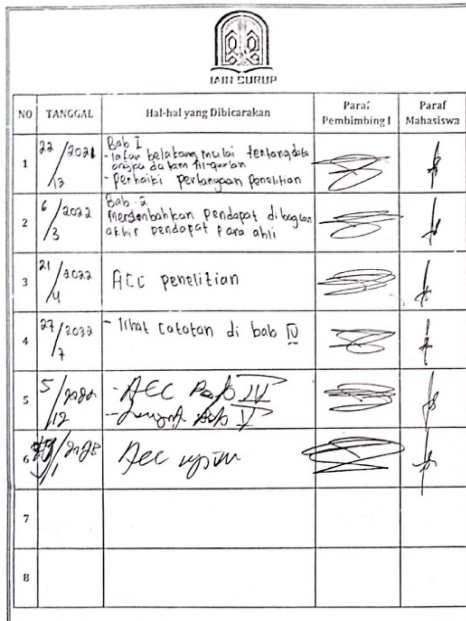 IAIN CURUP
NO TANGGAL Hal-hal yang Dibicarakan Paraf Pembimbing I Paraf Mahasiswa
1 22/12 2021 Bab I
- latar belakang mulai tentang data
angka dalam Al-quran
- Perbaiki pertanyaan penelitian
2 6/3 2022 Bab 2
Menambahkan Pendapat dibagian
akhir pendapat para ahli
3 21/4 2022 ACC penelitian
4 27/7 2022 - lihat catatan di bab IV
5 5/12 - ACC Bab IV
- Bab V
6 Acc ujian
7
8